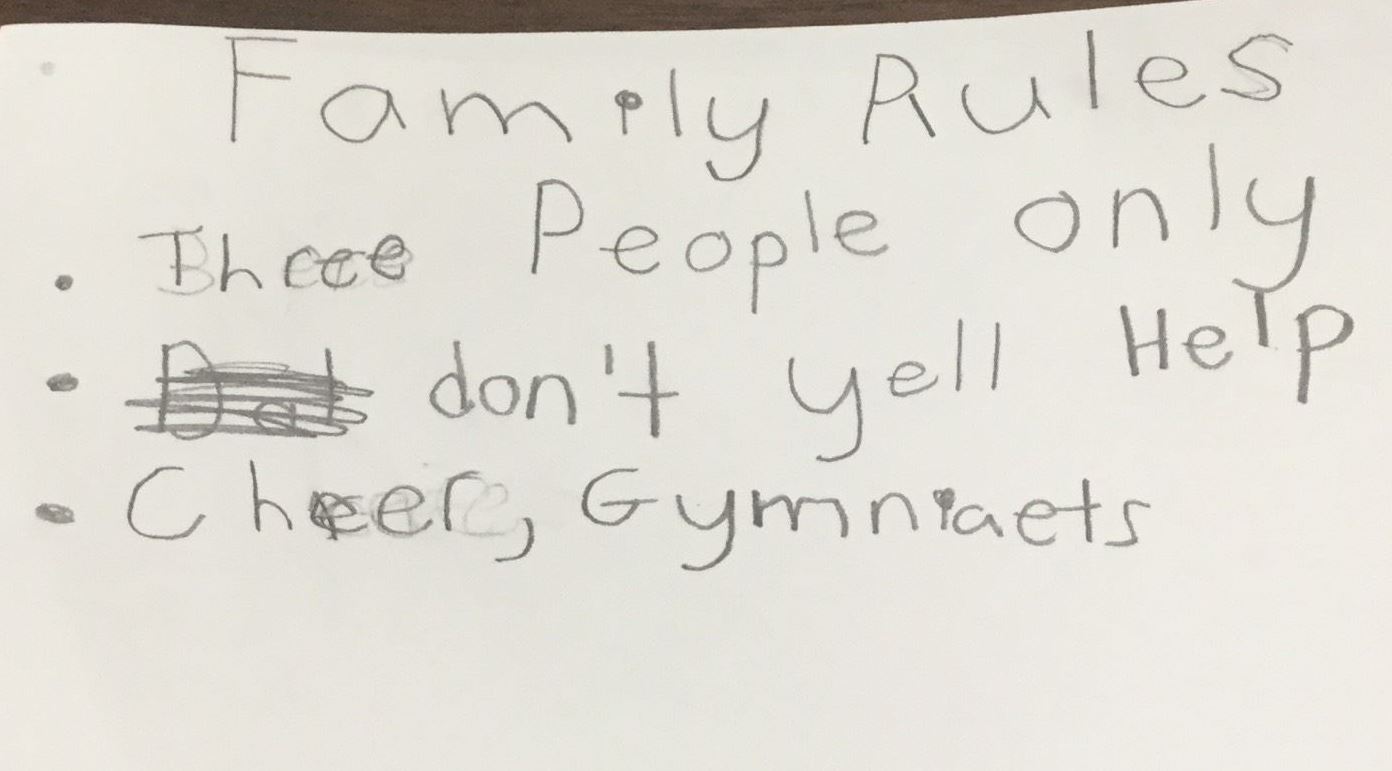 Family Rules
• Three People only
• don't yell Help
• Cheer, Gymniaets